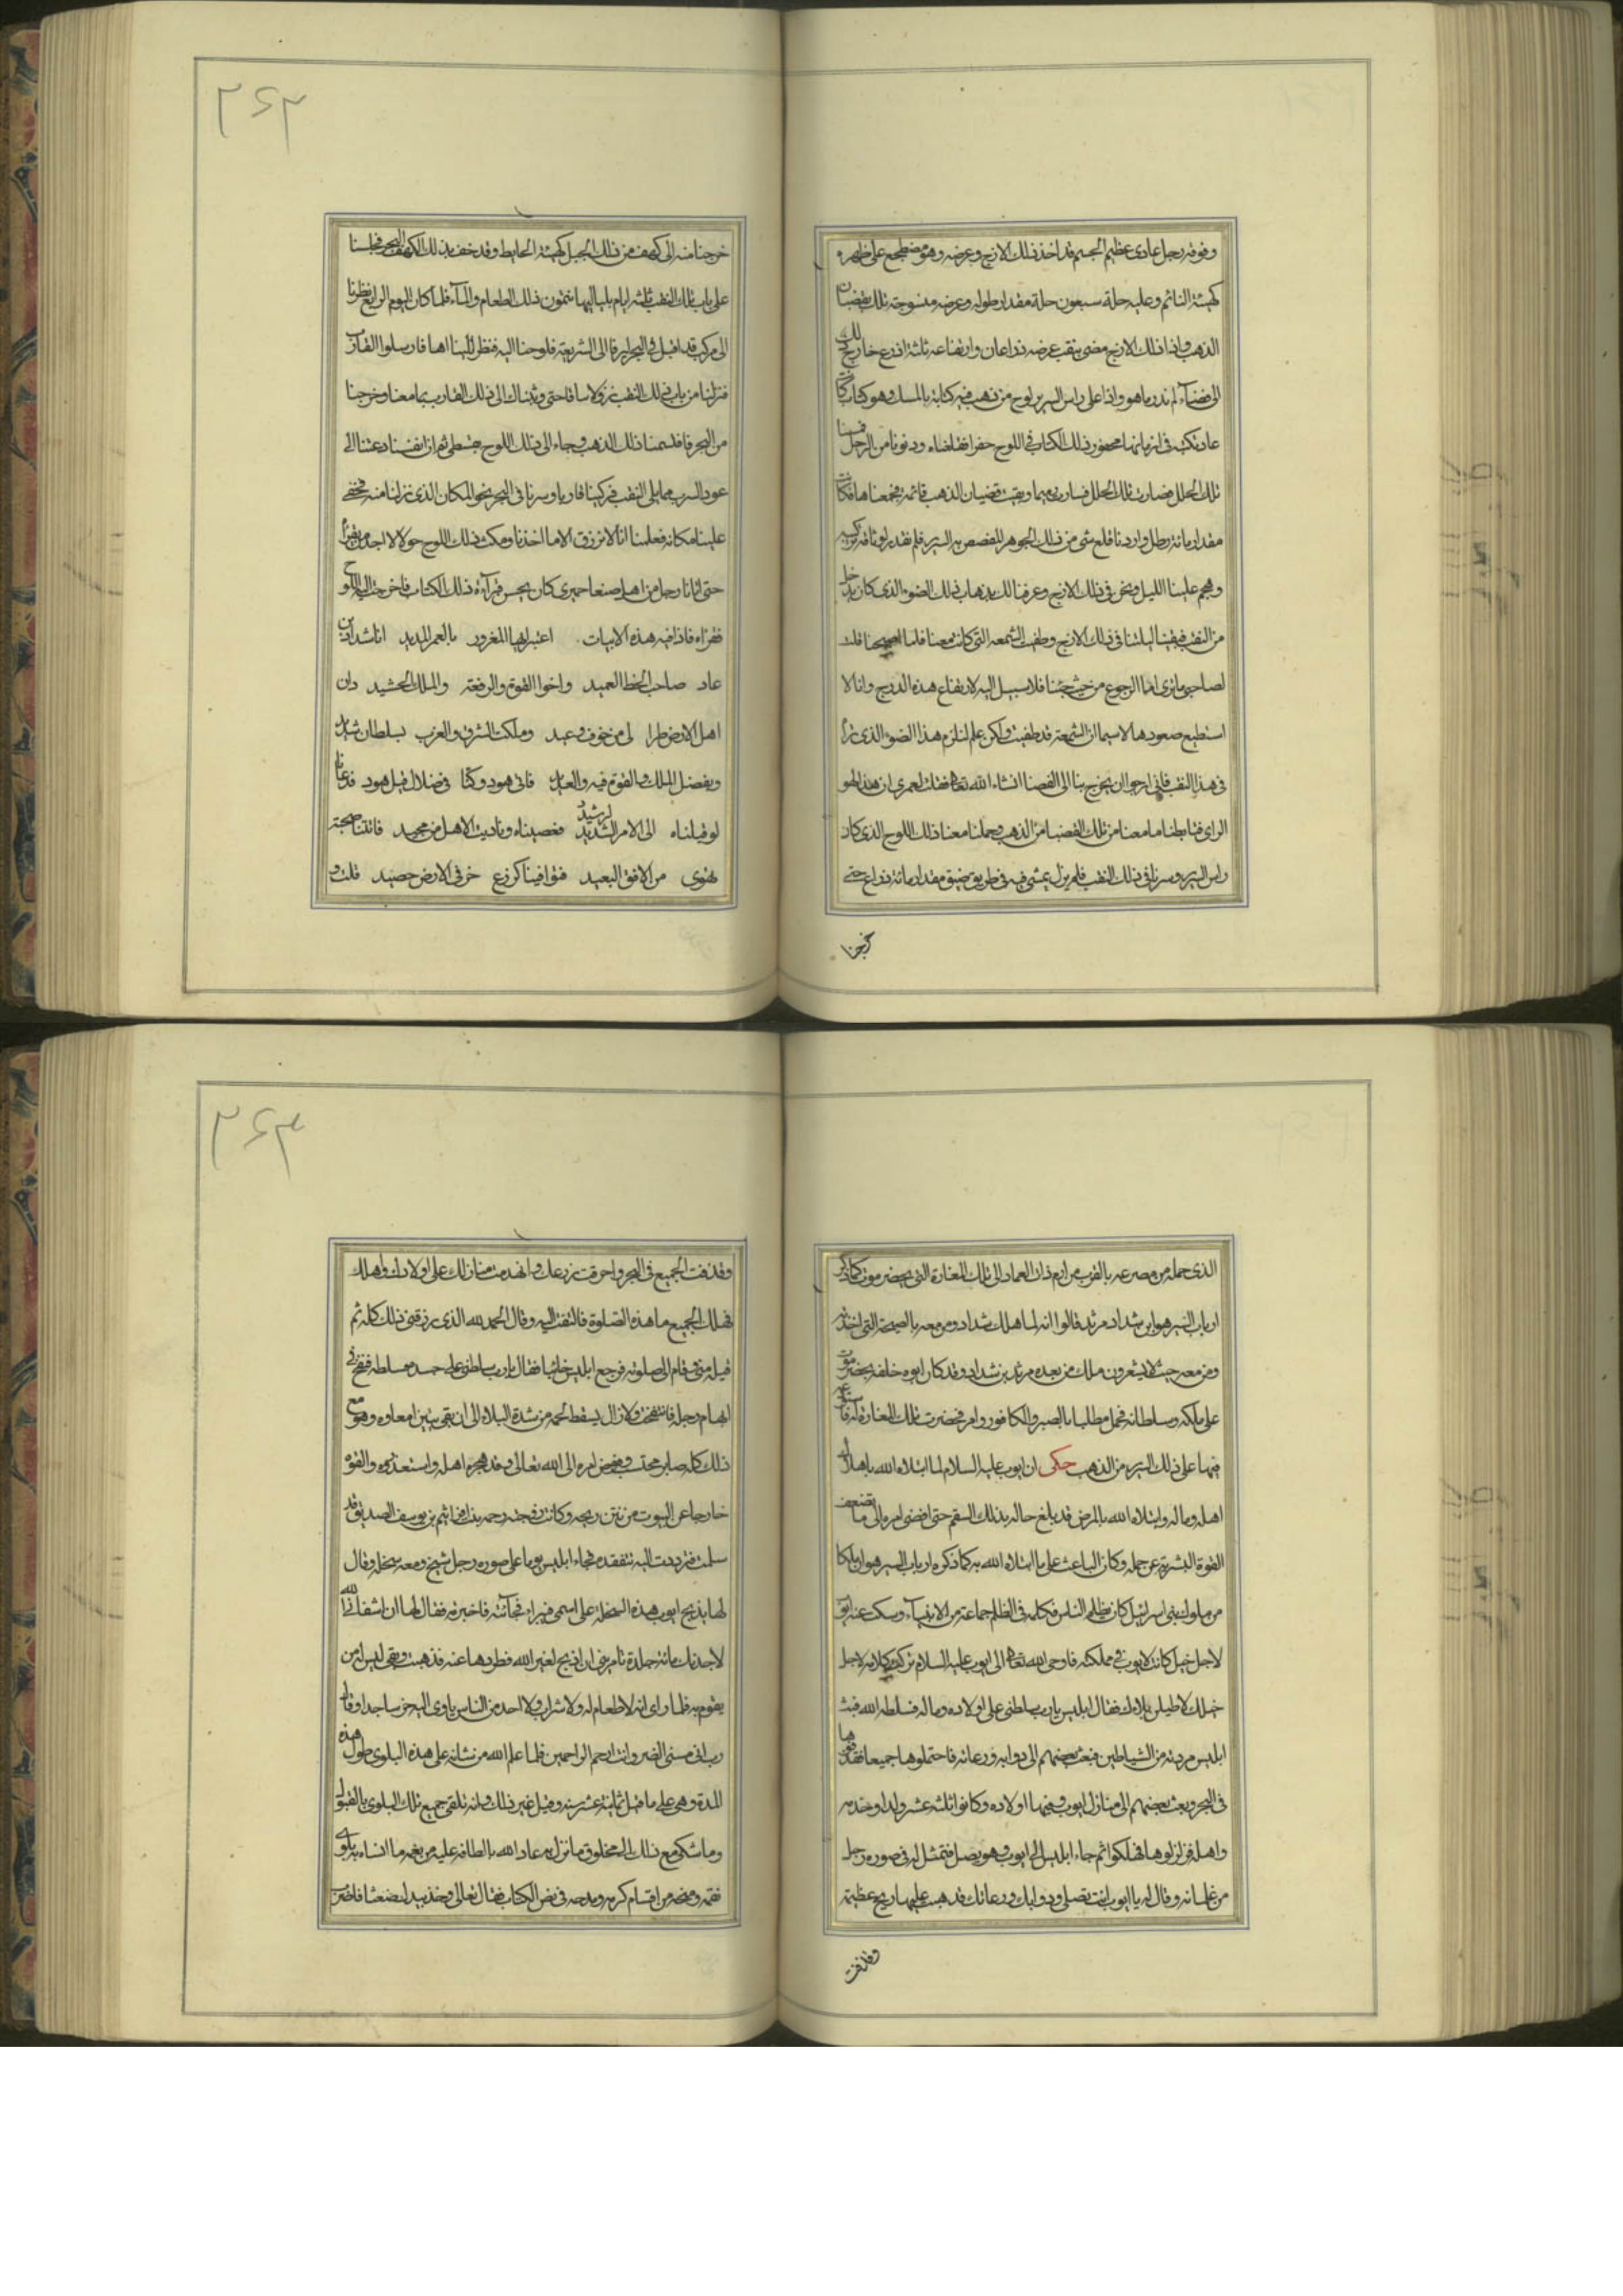 وفوقه رجل عادى عظيم الجسم قد اخذ ذلك الازج وعرضه وهو مضطجع على ظهره
كهيئة النائم وعليه حلة سبعون حلة مقدار طوله وعرضه منسوجة تلك بقضبان
الذهب واذا ذلك الازج مضى بنقب عرضه ذراعان وارتفاعه ثلثة اذرع خارج
الى فضاء لم ندر ما هو واذا على راس السرير لوح من ذهب فيه كتابة بالمسك وهو كتاب كانت
عاد تكتبه فى ازمانها محفور ذلك الكتاب فى اللوح حفرا فقلعناه ودنونا من الرجل فمسنا
تلك الحلل فصارت تلك الحلل رميما وبقيت قضبان الذهب قائمة فجمعناها فكانت
مقدار مائة رطل واردنا قلع شى من ذلك الجوهر المفصص به السرير فلم نقدر لوثاقة تركيبه
وهجم علينا الليل ونحن فى ذلك الازج وعرفنا لك بذهاب ذلك الضوء الذى كان يدخل
من النقب فبقينا ليلتنا فى ذلك الازج وطفيت الشمعه التى كانت معنا فلما اصبحنا قلت
لصاحبى ما ترى اما الرجوع من حيث جئنا فلا سبيل اليه لارتفاع هذه الدرج وانا لا
استطيع صعودها لاسيما ان الشمعة قد طفيت ولكن هلم لنلزم هذا الضوء الذى نرا
فى هذا النقب فانى ارجو ان يخرج بنا الى الفضا انشاء الله تعا فقلت لعمرى ان هذا لهو
الراى فتابطنا ما معنا من تلك القضبا من الذهب وحملنا معنا ذلك اللوح الذى كان
راس السرير وسرنا فى ذلك النقب فلم نزل نمشى فيه فى طريق ضيق مقدار مائة ذراع حتى
خرجنا
٢٦٢
خرجنا منه الى كهف من ذلك الجبل كهيئة الحايط وقد حف بذلك الكهف البحر فجلسنا
على باب تلك النقب ثلثة ايام بلياليها نتمون ذلك الطعام والماء فلما كان اليوم الرابع نظرنا
الى مركب قد اقبل فى البحر فلوحنا اليه فنظر الينا اهلها فارسلوا القارب
فنزلنا من باب ذلك النقب نزولا ساقا حتى وثبنا الى ذلك القارب بما معنا وخرجنا
من البحر فاقتسمنا ذلك الذهب وجاء الى ذلك اللوح بقسطى ثم ان انفسنا دعتنا الى
عود السرب مما يلى النقب فركبنا قاربا وسرنا فى البحر نحو المكان الذى نزلنا منه فخفى
علينا مكانه فعلمنا انا لا نرزق الا ما اخذنا ومكث ذلك اللوح حولا لا اجد من يقرأ
حتى اتانا رجل من اهل صنعا حميرى كان يحسن قرآءة ذلك الكتاب فاخرجت اليه اللوح
فقراه فاذا فيه هذه الابيات اعتبر ايها المغرور بالعمر المديد انا شداد بن
عاد صاحب الحظ العميد واخوا القوة والرفعة والملك الحشيد دان
اهل الارض طرا لى من خوف وعيد وملكت الشرق والغرب بسلطان شديد
وبفضل الملك والقوة فيه والعديد فاتى هود وكنا فى ضلال قبل هود فدعانا
لو قبلناه الى الامر الرشيد فعصيناه وناديت الا هل من محيد فاتتنا صيحة
تهوى من الافق البعيد فتوافينا كزرع خر فى الارض حصيد قلت و
الذى حمله من مصرعه بالقرب من ارم ذات العماد الى تلك المغارة التى بحضرموت كما ذكر
ارباب السير هو ابن شداد مرثد قالوا انه لما هلك شداد ومن معه بالصيحة التى اخذته
ومن معه حيث لا يشعرون ملك من بعده مرثد بن شداد وقد كان ابوه خلفه بحضرموت
على ملكه وسلطانه فحمل مطليا بالصبر والكافور وامر فحضرت تلك المغارة له
فيها على ذلك السرير من الذهب حكى ان ايوب عليه السلام لما ابتلاه الله باهلاك
اهله وماله وابتلاه الله بالمرض قد بلغ حاله بذلك السقم حتى افضى امره الى ما تضعف
القوة البشرية عن حمله وكان الباعث على ما ابتلاه الله به كما ذكره ارباب السير هو ان ملكا
من ملوك بنى اسرائيل كان يظلم الناس فكلمه فى الظلم جماعة من الانبيآء وسكت عنه ايوب
لاجل خيل كانت لايوب فى مملكته فاوحى الله تعا الى ايوب عليه السلام تركت كلامه لاجل
خيلك لاطيلن بلاءك فقال ابليس يارب سلطنى على اولاده وماله فسلطه الله فبث
ابليس مردته من الشياطين فبعث بعضهم الى دوابه ورعاته فاحتملوها جميعا فقذفوها
فى البحر وبعث بعضهم الى منازل ايوب وفيها اولاده وكانوا ثلثة عشر ولدا وخدمه
واهله فزلزلوها فهلكوا ثم جاء ابليس الى ايوب وهو يصلى فتمثل له فى صورة رجل
من غلمانه وقال له يا ايوب انت تصلى ودوابك ورعاتك قد هبت عليها ريح عظيمة
وقذفت
٢٦٣
وقذفت الجميع فى البحر واحرقت زرعك وانهدمت منازلك على اولادك واهلك
فهلك الجميع ما هذه الصلوة فالتفت اليه وقال الحمد لله الذى رزقنى ذلك كله ثم
قبله منى وقام الى صلوته فرجع ابليس خائبا فقال يارب سلطنى على جسده فسلطه فنفخ فى
ابهام رجله فانتفخت ولازال يسقط لحمه من شدة البلاء الى ان بقى تبين امعاوه وهو مع
ذلك كله صابر محتسب ومفوض امره الى الله تعالى وقد هجره اهله واستقذروه والقوه
خارجا عن البيوت من نتن ريحه وكانت زوجته رحمه بنت افراثيم بن يوسف الصديق قد
سلمت فترددت اليه تتفقده فجاء ابليس يوما على صورة رجل شيخ ومعه سخله وقال
لها يذبح ايوب هذه السخلة على اسمى فيبراء فجآئته فاخبرته فقال لها ان شفانى الله
لاجلدنك مائة جلدة تامرينى ان اذبح لغير الله فطردها عنه فذهبت وبقى ليس له من
يقوم به فلما راى انه لا طعام له ولا شراب ولا احد من الناس ياوى اليه خر ساجدا وقال
رب انى مسنى الضر وانت ارحم الراحمين فلما علم الله من ثباته على هذه البلوى طول هذه
المدة وهى على ما قيل ثمانية عشر سنة وقيل غير ذلك وانه تلقى جميع تلك البلوى بالقبول
وما شكى مع ذلك الى مخلوق ما نزل به عاد الله بالطافه عليه من نعمه ما انساه بلوى
نقمه ومنحه من اقسام كرمه ومدحه فى نص الكتاب فقال تعالى وخذ بيدك ضغثا فاضرب